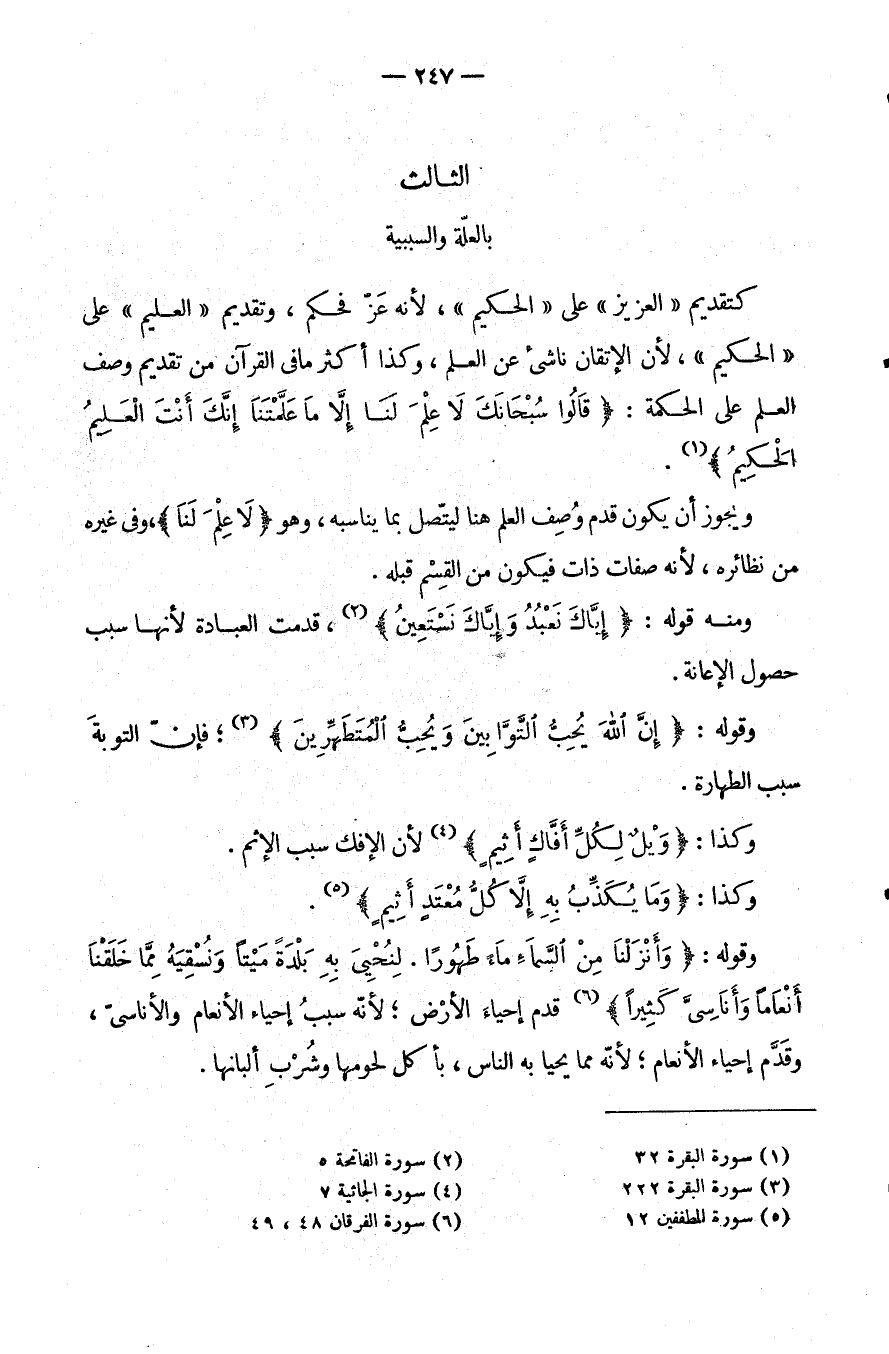 — ٢٤٧ —
الثالث
بالعلّة والسببية
كتقديم « العزيز » على « الحكيم » ، لأنه عَزّ فحكم ، وتقديم « العليم » على
« الحكيم » ، لأن الإتقان ناشئ عن العلم ، وكذا أكثر مافى القرآن من تقديم وصف
العلم على الحكمة : ﴿ قَالُوا سُبْحَانَكَ لَا عِلْمَ لَنَا إِلَّا مَا عَلَّمْتَنَا إِنَّكَ أَنْتَ الْعَلِيمُ
الْحَكِيمُ ﴾(١) .
ويجوز أن يكون قدم وُصِف العلم هنا ليتّصل بما يناسبه ، وهو ﴿ لَا عِلْمَ لَنَا ﴾،وفى غيره
من نظائره ، لأنه صفات ذات فيكون من القِسْم قبله .
ومنه قوله : ﴿ إِيَّاكَ نَعْبُدُ وَإِيَّاكَ نَسْتَعِينُ ﴾ (٢) ، قدمت العبادة لأنها سبب
حصول الإعانة .
وقوله : ﴿ إِنَّ ٱللهَ يُحِبُّ ٱلتَّوَّابِينَ وَيُحِبُّ ٱلْمُتَطَهِّرِينَ ﴾ (٣) ؛ فإنّ التوبةَ
سبب الطهارة .
وكذا : ﴿ وَيْلٌ لِكُلِّ أَفَّاكٍ أَثِيمٍ ﴾ (٤) لأن الإفك سبب الإثم .
وكذا : ﴿ وَمَا يُكَذِّبُ بِهِ إِلَّا كُلُّ مُعْتَدٍ أَثِيمٍ ﴾ (٥) .
وقوله : ﴿ وَأَنْزَلْنَا مِنْ ٱلسَّمَاءِ مَاءً طَهُورًا . لِنُحْيِىَ بِهِ بَلْدَةً مَيْتاً وَنُسْقِيَهُ مِمَّا خَلَقْنَا
أَنْعَاماً وَأَنَاسِىَّ كَثِيراً ﴾ (٦) قدم إحياءَ الأرْض ؛ لأنّه سببُ إحياء الأنعام والأناسىّ ،
وقَدَّم إحياء الأنعام ؛ لأنّه مما يحيا به الناس ، بأكل لحومها وشُرْبِ ألبانها .
(١) سورة البقرة ٣٢ (٢) سورة الفاتحة ٥
(٣) سورة البقرة ٢٢٢ (٤) سورة الجاثية ٧
(٥) سورة المطففين ١٢ (٦) سورة الفرقان ٤٨ ، ٤٩